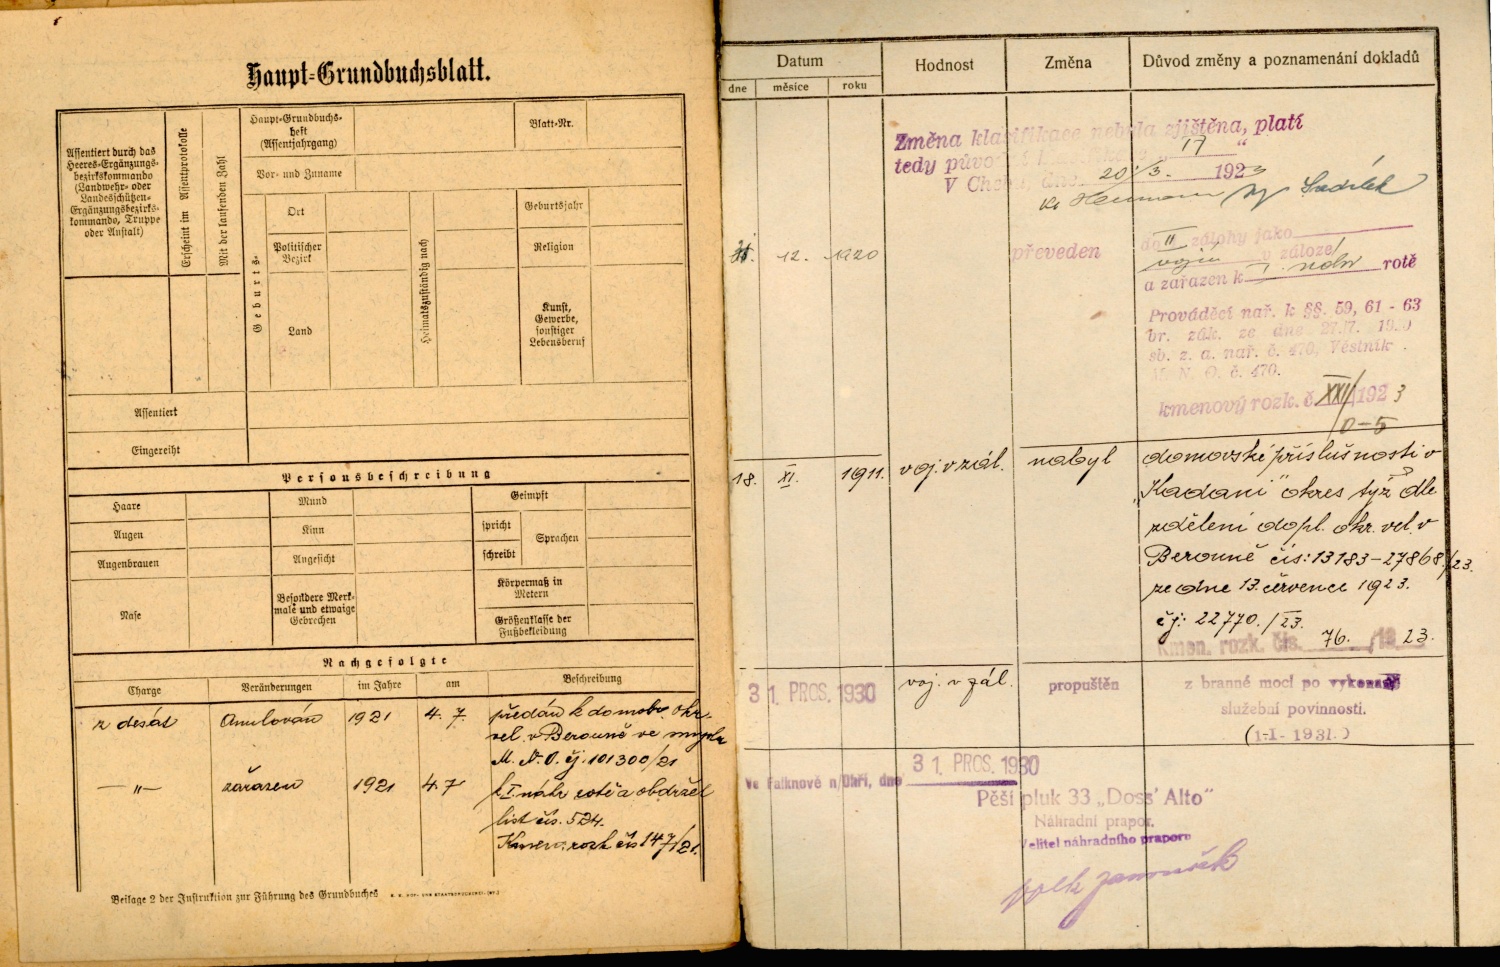 Haupt-Grundbuchsblatt.
Assentiert durch das
Heeres-Ergänzungs-
bezirkskommando
(Landwehr- oder
Landesschützen-
Ergänzungsbezirks-
kommando, Truppe
oder Anstalt)
Erscheint im Assentprotokolle
Mit der laufenden Zahl
Haupt-Grundbuchs-
heft
(Assentjahrgang)
Blatt-Nr.
Vor- und Zuname
Geburts-
Ort
Politischer
Bezirk
Land
Heimatszuständig nach
Geburtsjahr
Religion
Kunst,
Gewerbe,
sonstiger
Lebensberuf
Assentiert
Eingereiht
Personsbeschreibung
Haare
Augen
Augenbrauen
Nase
Mund
Kinn
Angesicht
Besondere Merk-
male und etwaige
Gebrechen
Geimpft
spricht
schreibt
Sprachen
Körpermaß in
Metern
Größenklasse der
Fußbekleidung
Nachgefolgte
Charge Veränderungen im Jahre am Beschreibung
desát 1921 4. 7. předán k domobr. okr.
vel. v Berouně ve smyslu
M. N. O. čj. 101300/21
—„— zařazen 1921 4.7 k I. náhr. rotě a obdržel
list čís. 524.
Kmen. rozk. čís 147/21.
Beilage 2 der Instruktion zur Führung des Grundbuches
Datum Hodnost Změna Důvod změny a poznamenání dokladů
dne měsíce roku
Změna klasifikace nebyla zjištěna, platí
tedy „17“
V dne 20./3. 1923
12. 1920 převeden do II zálohy jako
v záloze
a zařazen k I. rotě
Prováděcí nař. k §§. 59, 61 - 63
br. zák. ze dne 27./7.
sb. z. a. nař. č. 470, Věstník
M. N. O. č. 470.
kmenový rozk. č. XXI/1923
18. XI. 1911. voj. v zál. nabyl domovské příslušnosti v
„Kadani“ okres týž dle
sdělení dopl. okr. vel. v
Berouně čís: 13183-27868/23.
ze dne 13. července 1923.
čj: 22770./23.
Kmen. rozk. čís. 76. /1923.
31. PROS. 1930 voj. v zál. propuštěn z branné moci po vykonané
služební povinnosti.
(1-I-1931.)
Ve Falknově n/Ohří, dne 31. PROS. 1930
Pěší pluk 33 „Doss' Alto“
Náhradní prapor.
Velitel náhradního praporu